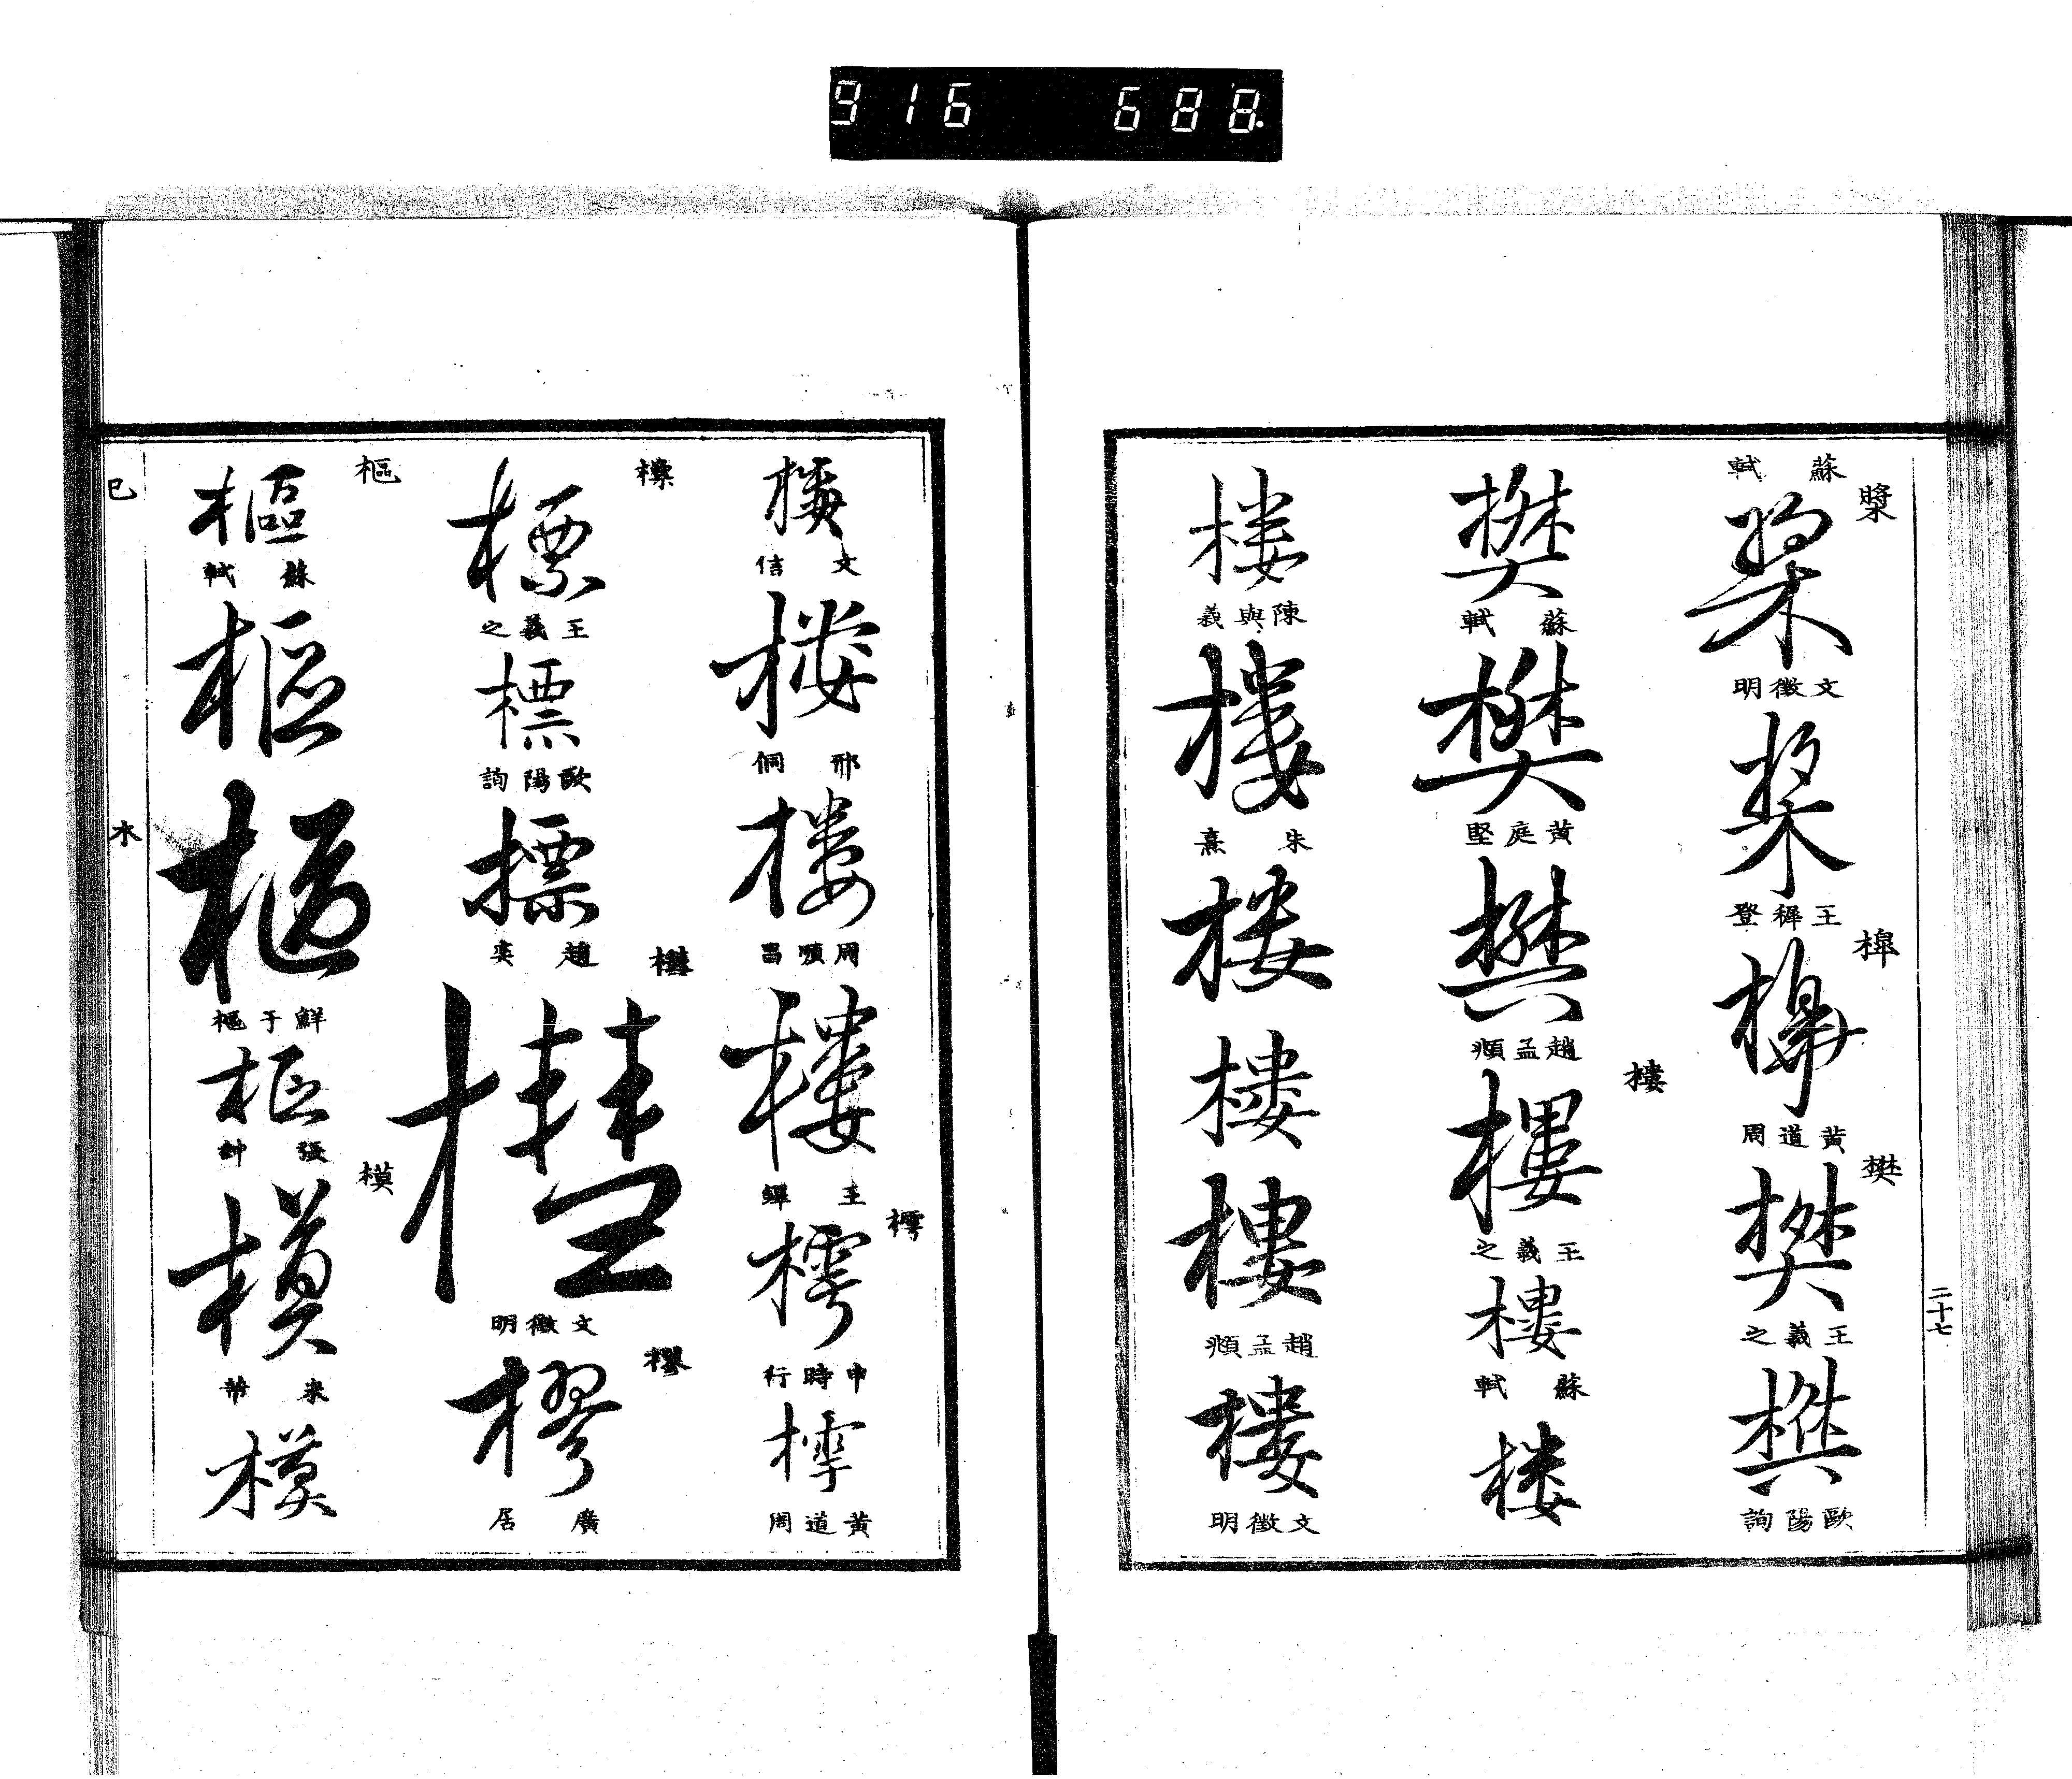 916 688
槳
蘇軾
槳
文徵明
槳
王穉登
槹
槹
黃道周
樊
樊
王羲之
樊
歐陽詢
二十七
樊
蘇軾
樊
黃庭堅
樊
趙孟頫
樓
樓
王羲之
樓
蘇軾
樓
樓
陳與義
樓
朱熹
樓
樓
樓
趙孟頫
樓
文徵明
樓
文信
樓
邢侗
樓
周順昌
樓
王鐸
樗
樗
申時行
樗
黃道周
標
標
王羲之
標
歐陽詢
標
趙奕
文徵明
樛
樛
康居
樞
樞
蘇軾
樞
樞
鮮于樞
樞
張紳
模
模
米芾
模
巳
木